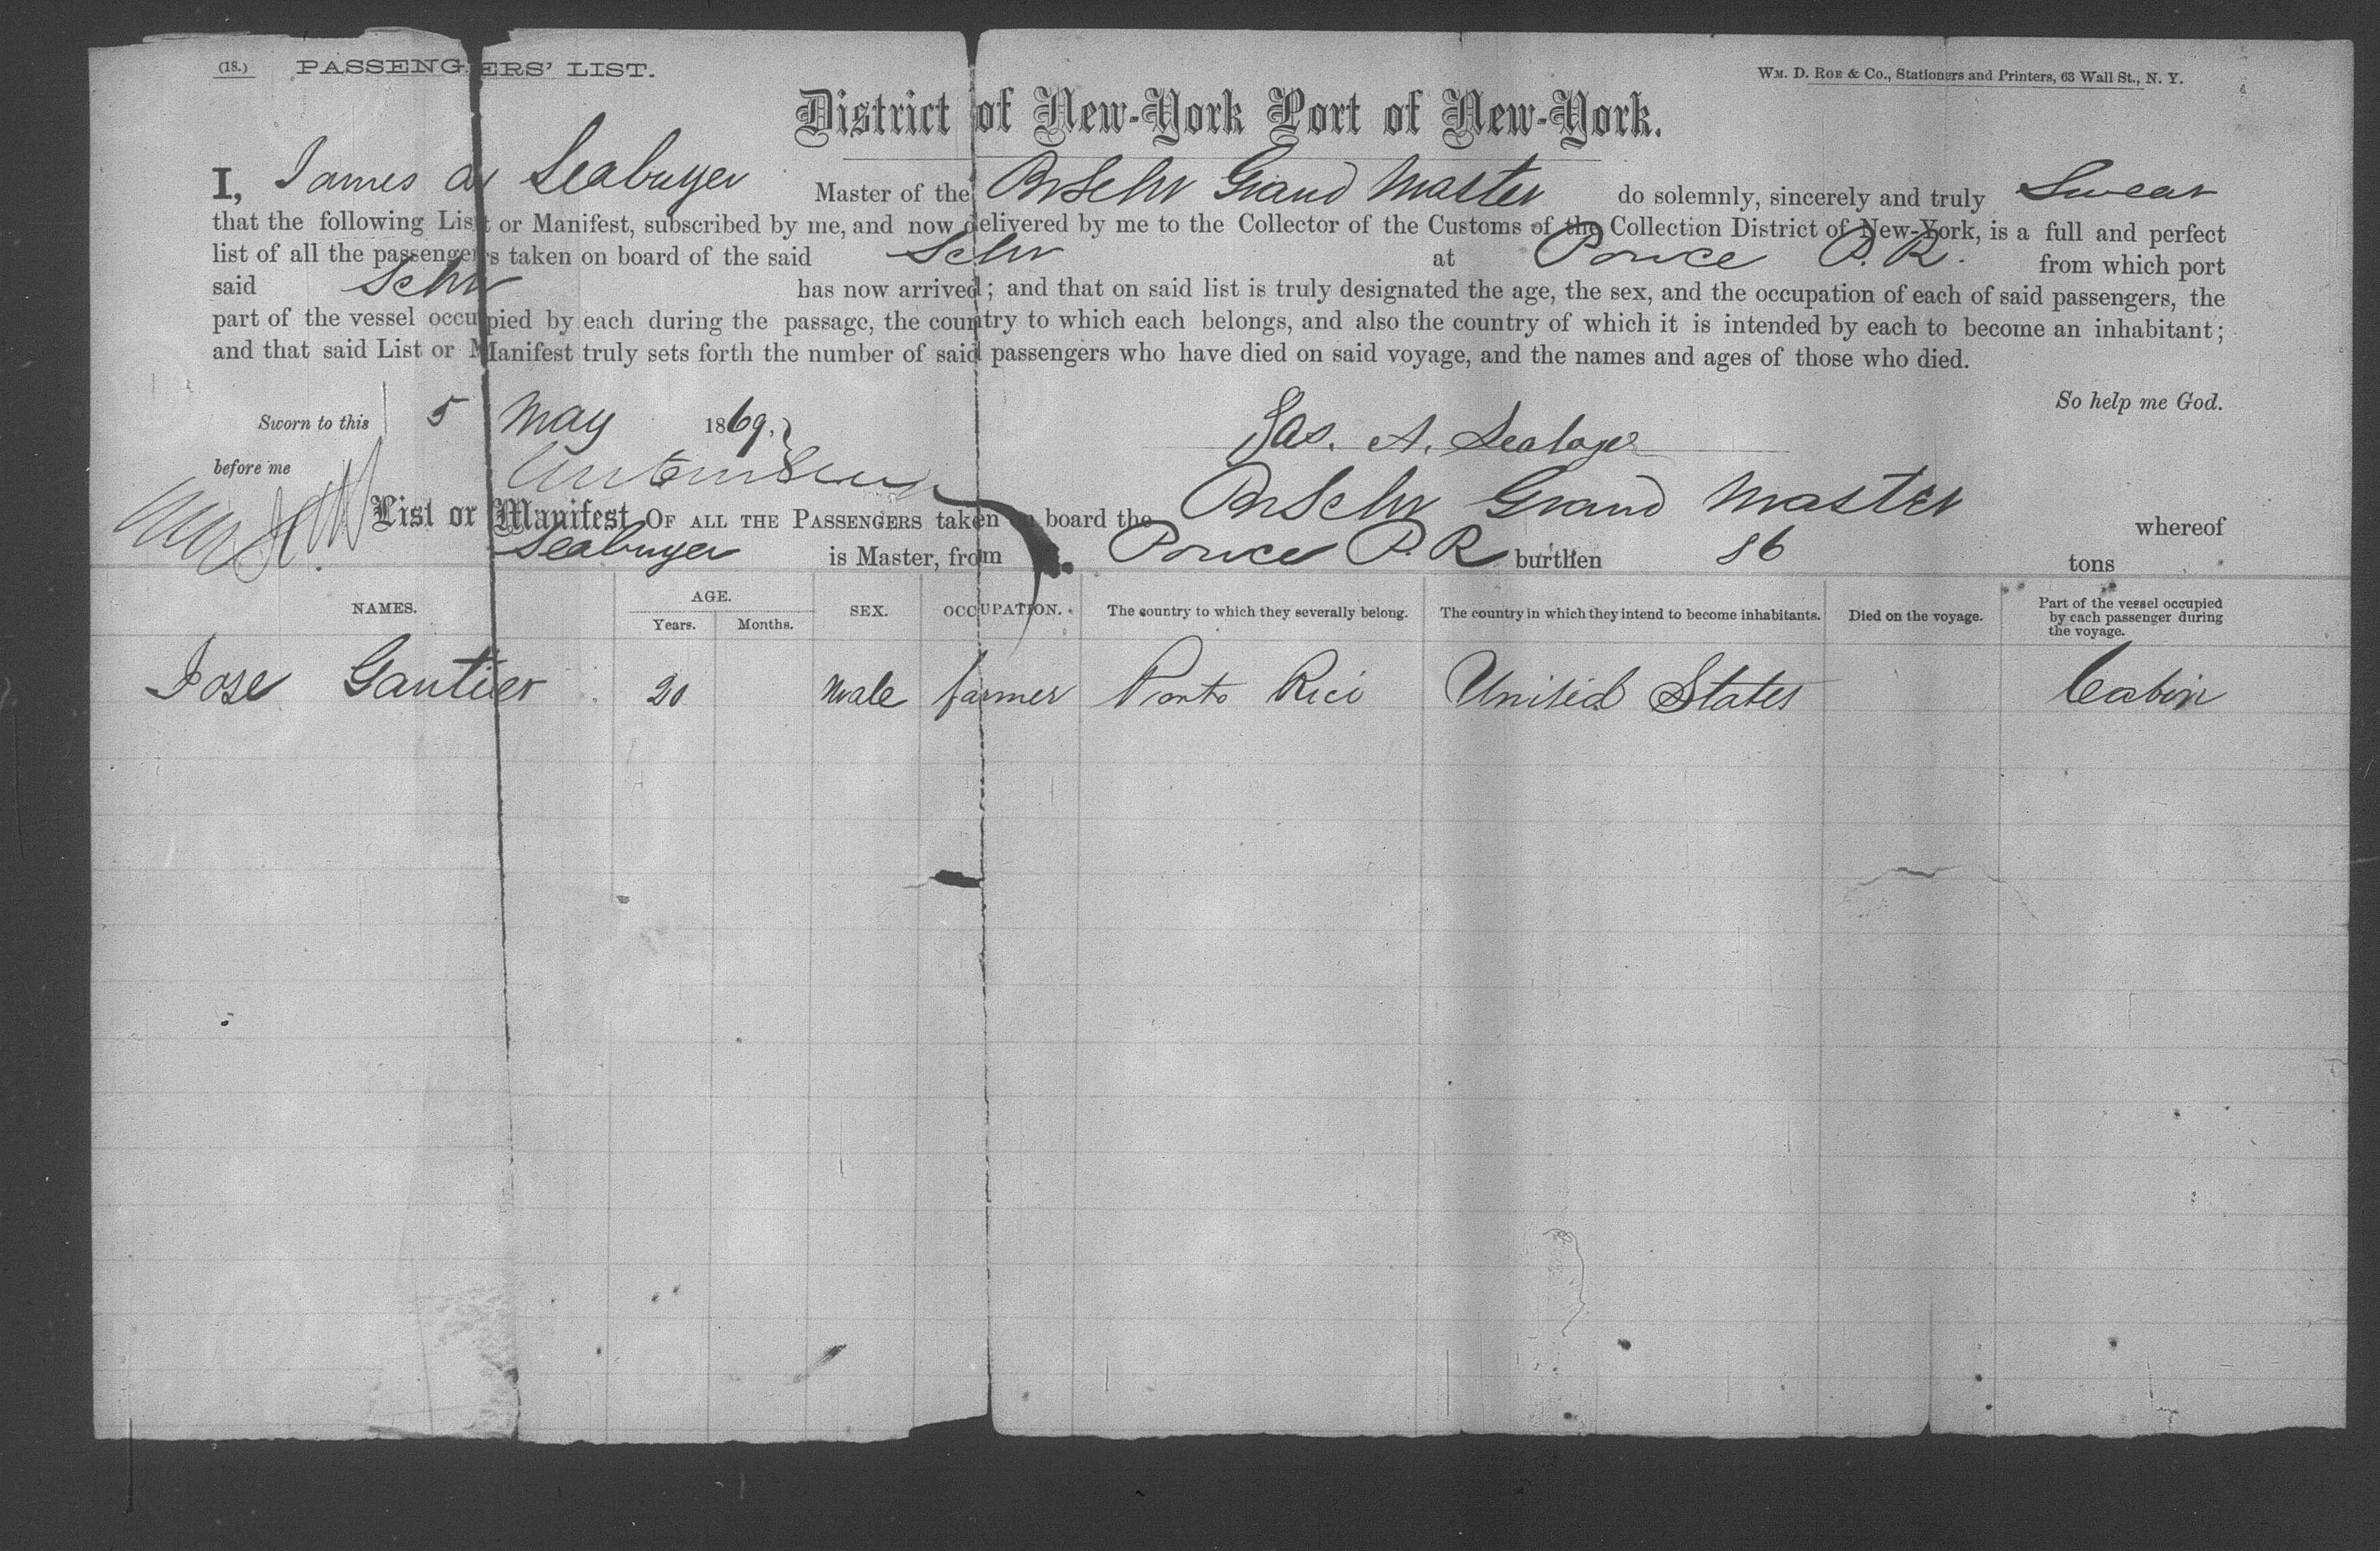 (18.) PASSENGERS' LIST.
WM. D. ROE & Co., Stationers and Printers, 63 Wall St., N. Y.
District of New-York Port of New-York.
I, James A Seabuyer Master of the BrSchr Grand Master do solemnly, sincerely and truly Swear
that the following List or Manifest, subscribed by me, and now delivered by me to the Collector of the Customs of the Collection District of New-York, is a full and perfect
list of all the passengers taken on board of the said Schr at Ponce P.R. from which port
said Schr has now arrived; and that on said list is truly designated the age, the sex, and the occupation of each of said passengers, the
part of the vessel occupied by each during the passage, the country to which each belongs, and also the country of which it is intended by each to become an inhabitant;
and that said List or Manifest truly sets forth the number of said passengers who have died on said voyage, and the names and ages of those who died.
So help me God.
Sworn to this 5 May 1869,
Jas. A.
before me
List or Manifest OF ALL THE PASSENGERS taken on board the BrSchr Grand Master whereof
Seabuyer is Master, from Ponce P.R burthen 86 tons
NAMES. AGE. Years. Months. SEX. OCCUPATION. The country to which they severally belong. The country in which they intend to become inhabitants. Died on the voyage. Part of the vessel occupied by each passenger during the voyage.
Jose Gautier 20 Male farmer Porto Rico United States Cabin